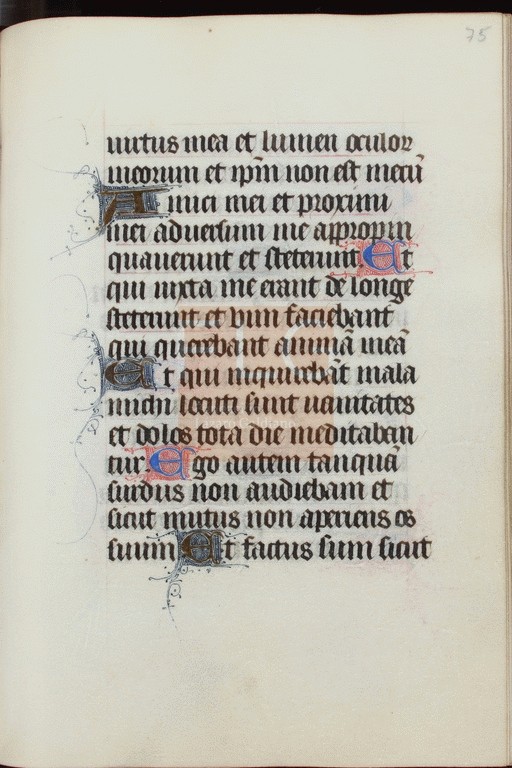 75
uirtus mea et lumen oculoꝝ
meorum et ip̄m non est mecū
Amici mei et proximi
mei aduersum me appropin
quauerunt et steterunt. Et
qui iuxta me erant de longe
steterunt et uim faciebant
qui querebant animā meā
Et qui inquirebāt mala
michi locuti sunt uanitates
et dolos tota die meditaban
tur. Ego autem tanquā
surdus non audiebam et
sicut mutus non aperiens os
suum Et factus sum sicut